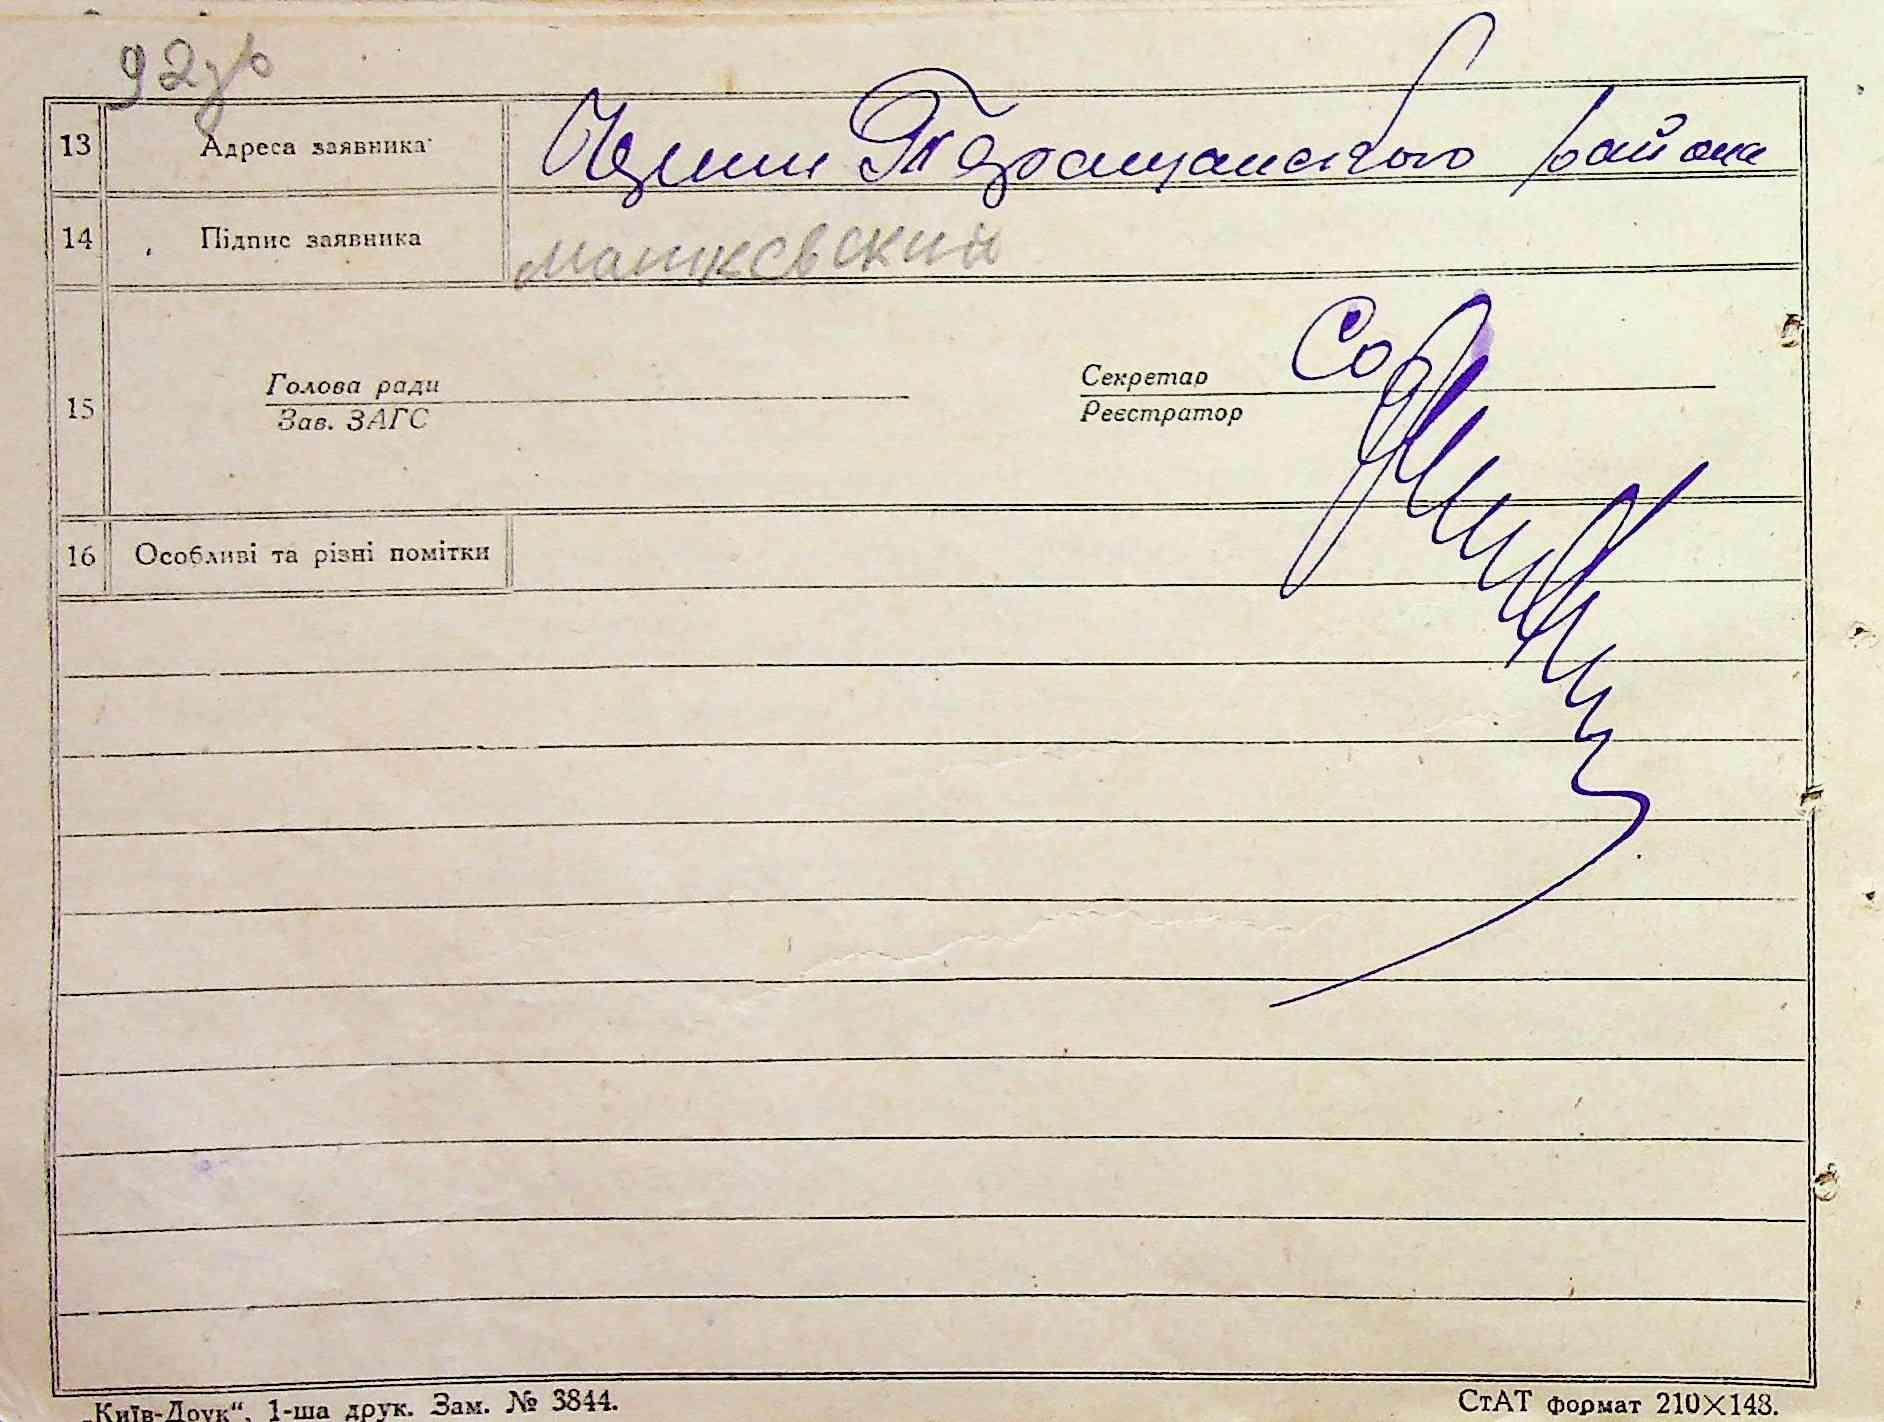 92зв
13 Адреса заявника Таращанского района
14 Підпис заявника
Голова ради Секретар
15
Зав. ЗАГС Реєстратор
16 Особливі та різні помітки
„Київ-Друк“, 1-ша друк. Зам. № 3844. СтАТ формат 210×148.